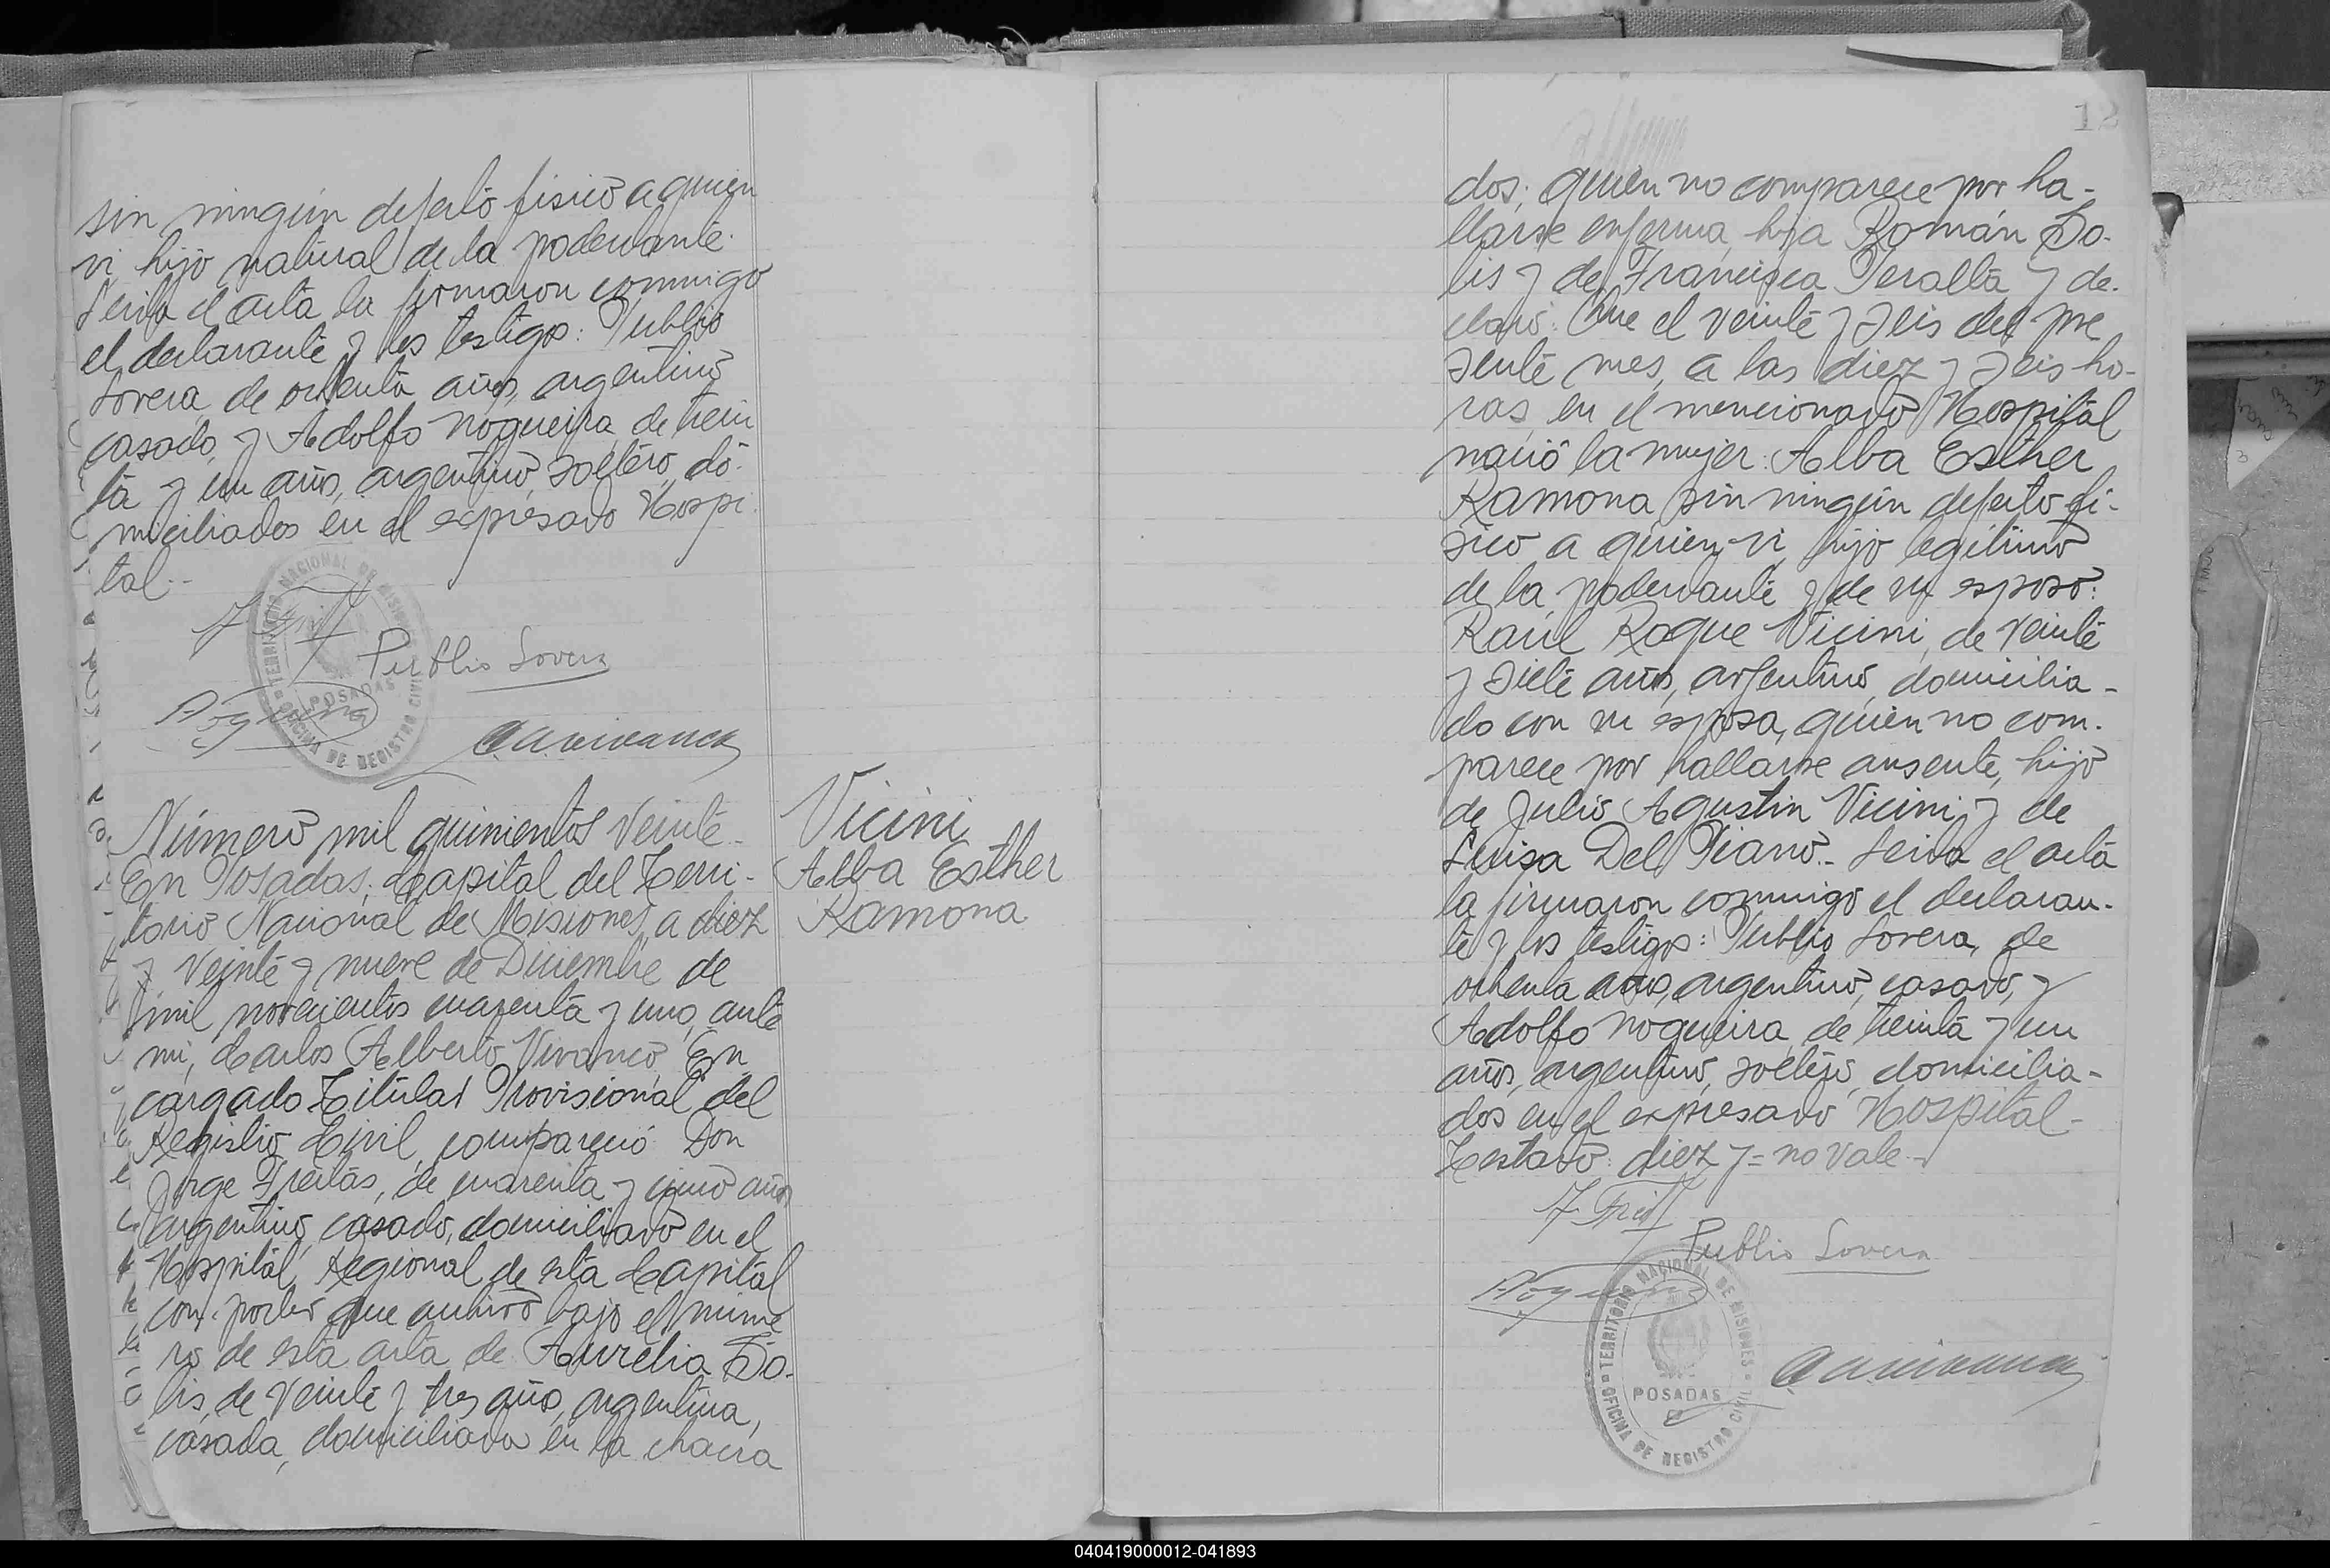 sin ningún defecto físico a quien
vi, hijo natural de la poderdante.
Leída el acta la firmaron conmigo
el declarante y los testigos: Publio
Lovera, de ochenta años, argentino
casado, y Adolfo Nogueira, de trein
ta y un años, argentino, soltero, do-
miciliados en el expresado Hospi
tal.-
Publio Lovera
TERRITORIO NACIONAL DE MISIONES
POSADAS
OFICINA DE REGISTRO CIVIL
Número mil quinientos veinte-
En Posadas, Capital del Terri-
torio Nacional de Misiones, a diez
y veinte y nueve de Diciembre de
mil novecientos cuarenta y uno, ante
mí, Carlos Alberto Vivanco, En
cargado Titular Provisional del
Registro Civil, compareció Don
Jorge Freitas, de cuarenta y cinco años
argentino, casado, domiciliado en el
Hospital Regional de esta Capital
con poder que archivo bajo el núme
ro de esta acta de Aurelia So-
lis, de veinte y tres años, argentina,
casada, domiciliada en la chacra
Vicini
Alba Esther
Ramona
12
dos; quien no comparece por ha-
llarse enferma, hija Román So-
lis y de Francisca Peralta y de-
claró: Que el veinte y seis del pre
sente mes, a las diez y seis ho-
ras, en el mencionado Hospital
nació la mujer: Alba Esther
Ramona, sin ningún defecto fí-
sico a quien vi, hijo legítimo
de la poderdante y de su esposo:
Raúl Roque Vicini, de veinte
y siete años, argentino, domicilia-
do con su esposa, quien no com-
parece por hallarse ausente, hijo
de Julio Agustin Vicini y de
Luisa Del Piano.- Leída el acta
la firmaron conmigo el declaran-
te y los testigos: Publio Lovera, de
ochenta años, argentino, casado, y
Adolfo Nogueira, de treinta y un
años, argentino, soltero, domicilia-
dos en el expresado Hospital-
Testado: diez y = no vale-
Publio Lovera
TERRITORIO NACIONAL DE MISIONES
POSADAS
OFICINA DE REGISTRO CIVIL
040419000012-041893